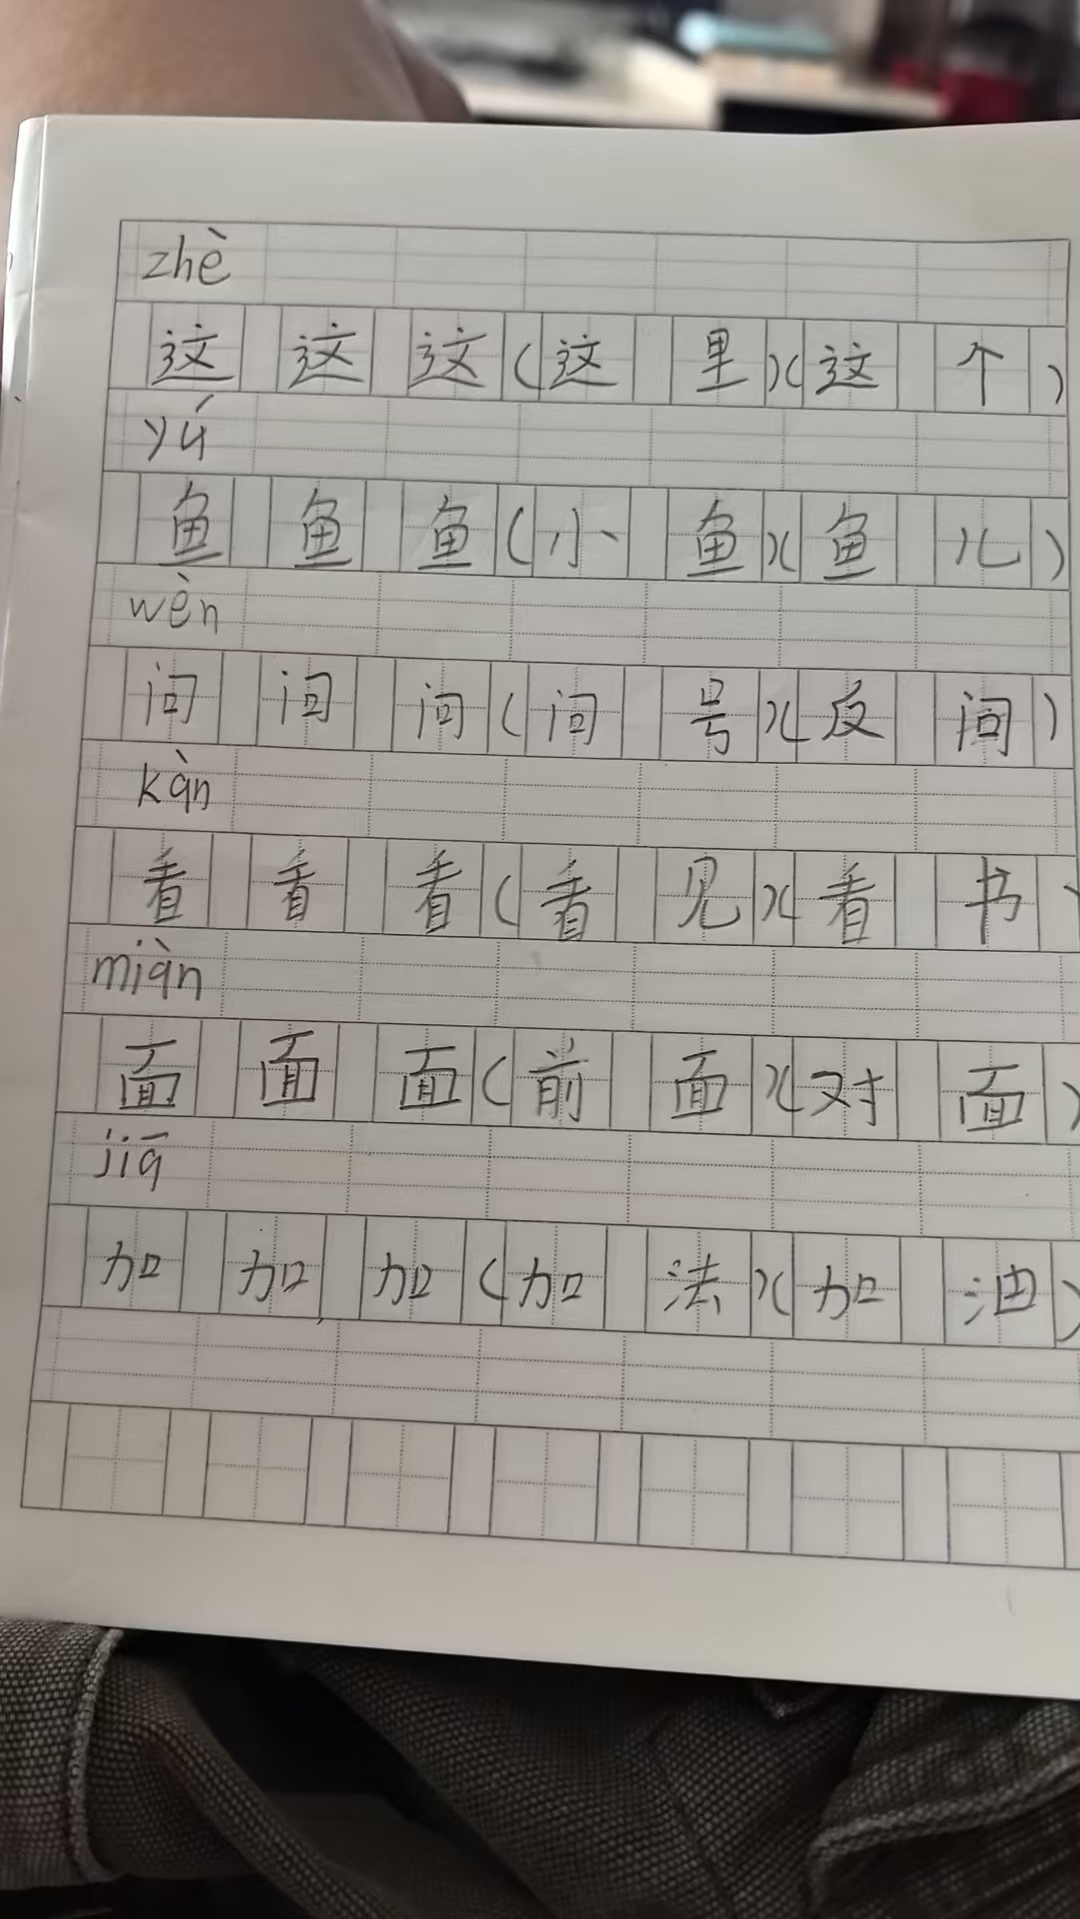 zhè
这 这 这 (这 里)(这 个)
yú
鱼 鱼 鱼 (小 鱼)(鱼 儿)
wèn
问 问 问 (问 号)(反 问)
kàn
看 看 看 (看 见)(看 书)
miàn
面 面 面 (前 面)(对 面)
jiā
加 加 加 (加 法)(加 油)